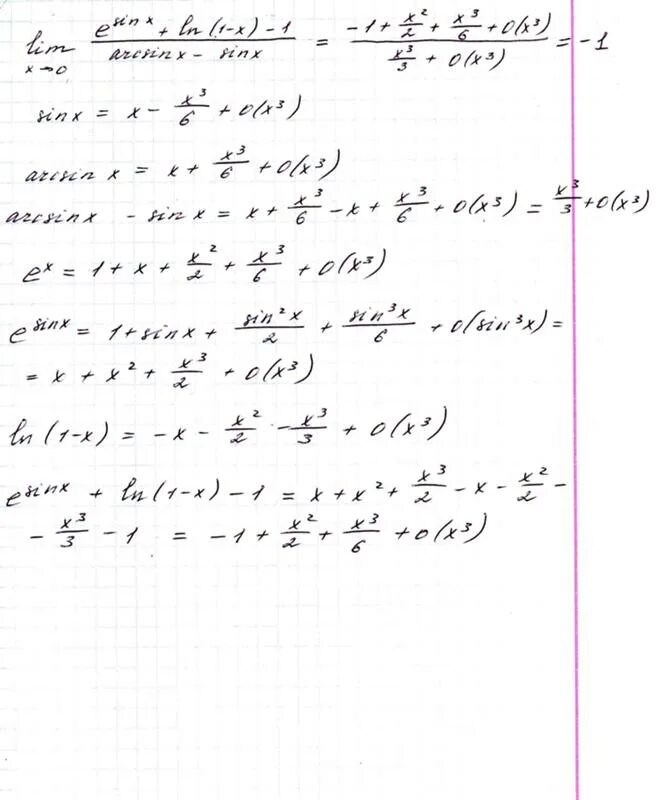 lim x→0 (e^(sin x) + ln(1-x) - 1)/(arcsin x - sin x) = (-1 + x²/2 + x³/6 + o(x³))/(x³/3 + o(x³)) = -1
sin x = x - x³/6 + o(x³)
arcsin x = x + x³/6 + o(x³)
arcsin x - sin x = x + x³/6 - x + x³/6 + o(x³) = x³/3 + o(x³)
e^x = 1 + x + x²/2 + x³/6 + o(x³)
e^(sin x) = 1 + sin x + sin²x/2 + sin³x/6 + o(sin³x) =
= x + x² + x³/2 + o(x³)
ln(1-x) = -x - x²/2 - x³/3 + o(x³)
e^(sin x) + ln(1-x) - 1 = x + x² + x³/2 - x - x²/2 -
- x³/3 - 1 = -1 + x²/2 + x³/6 + o(x³)